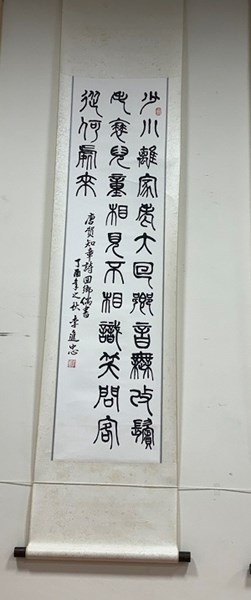 少小離家老大回鄉音無改鬢
毛衰兒童相見不相識笑問客
從何處來
唐賀知章詩回鄉偶書
丁酉年之秋